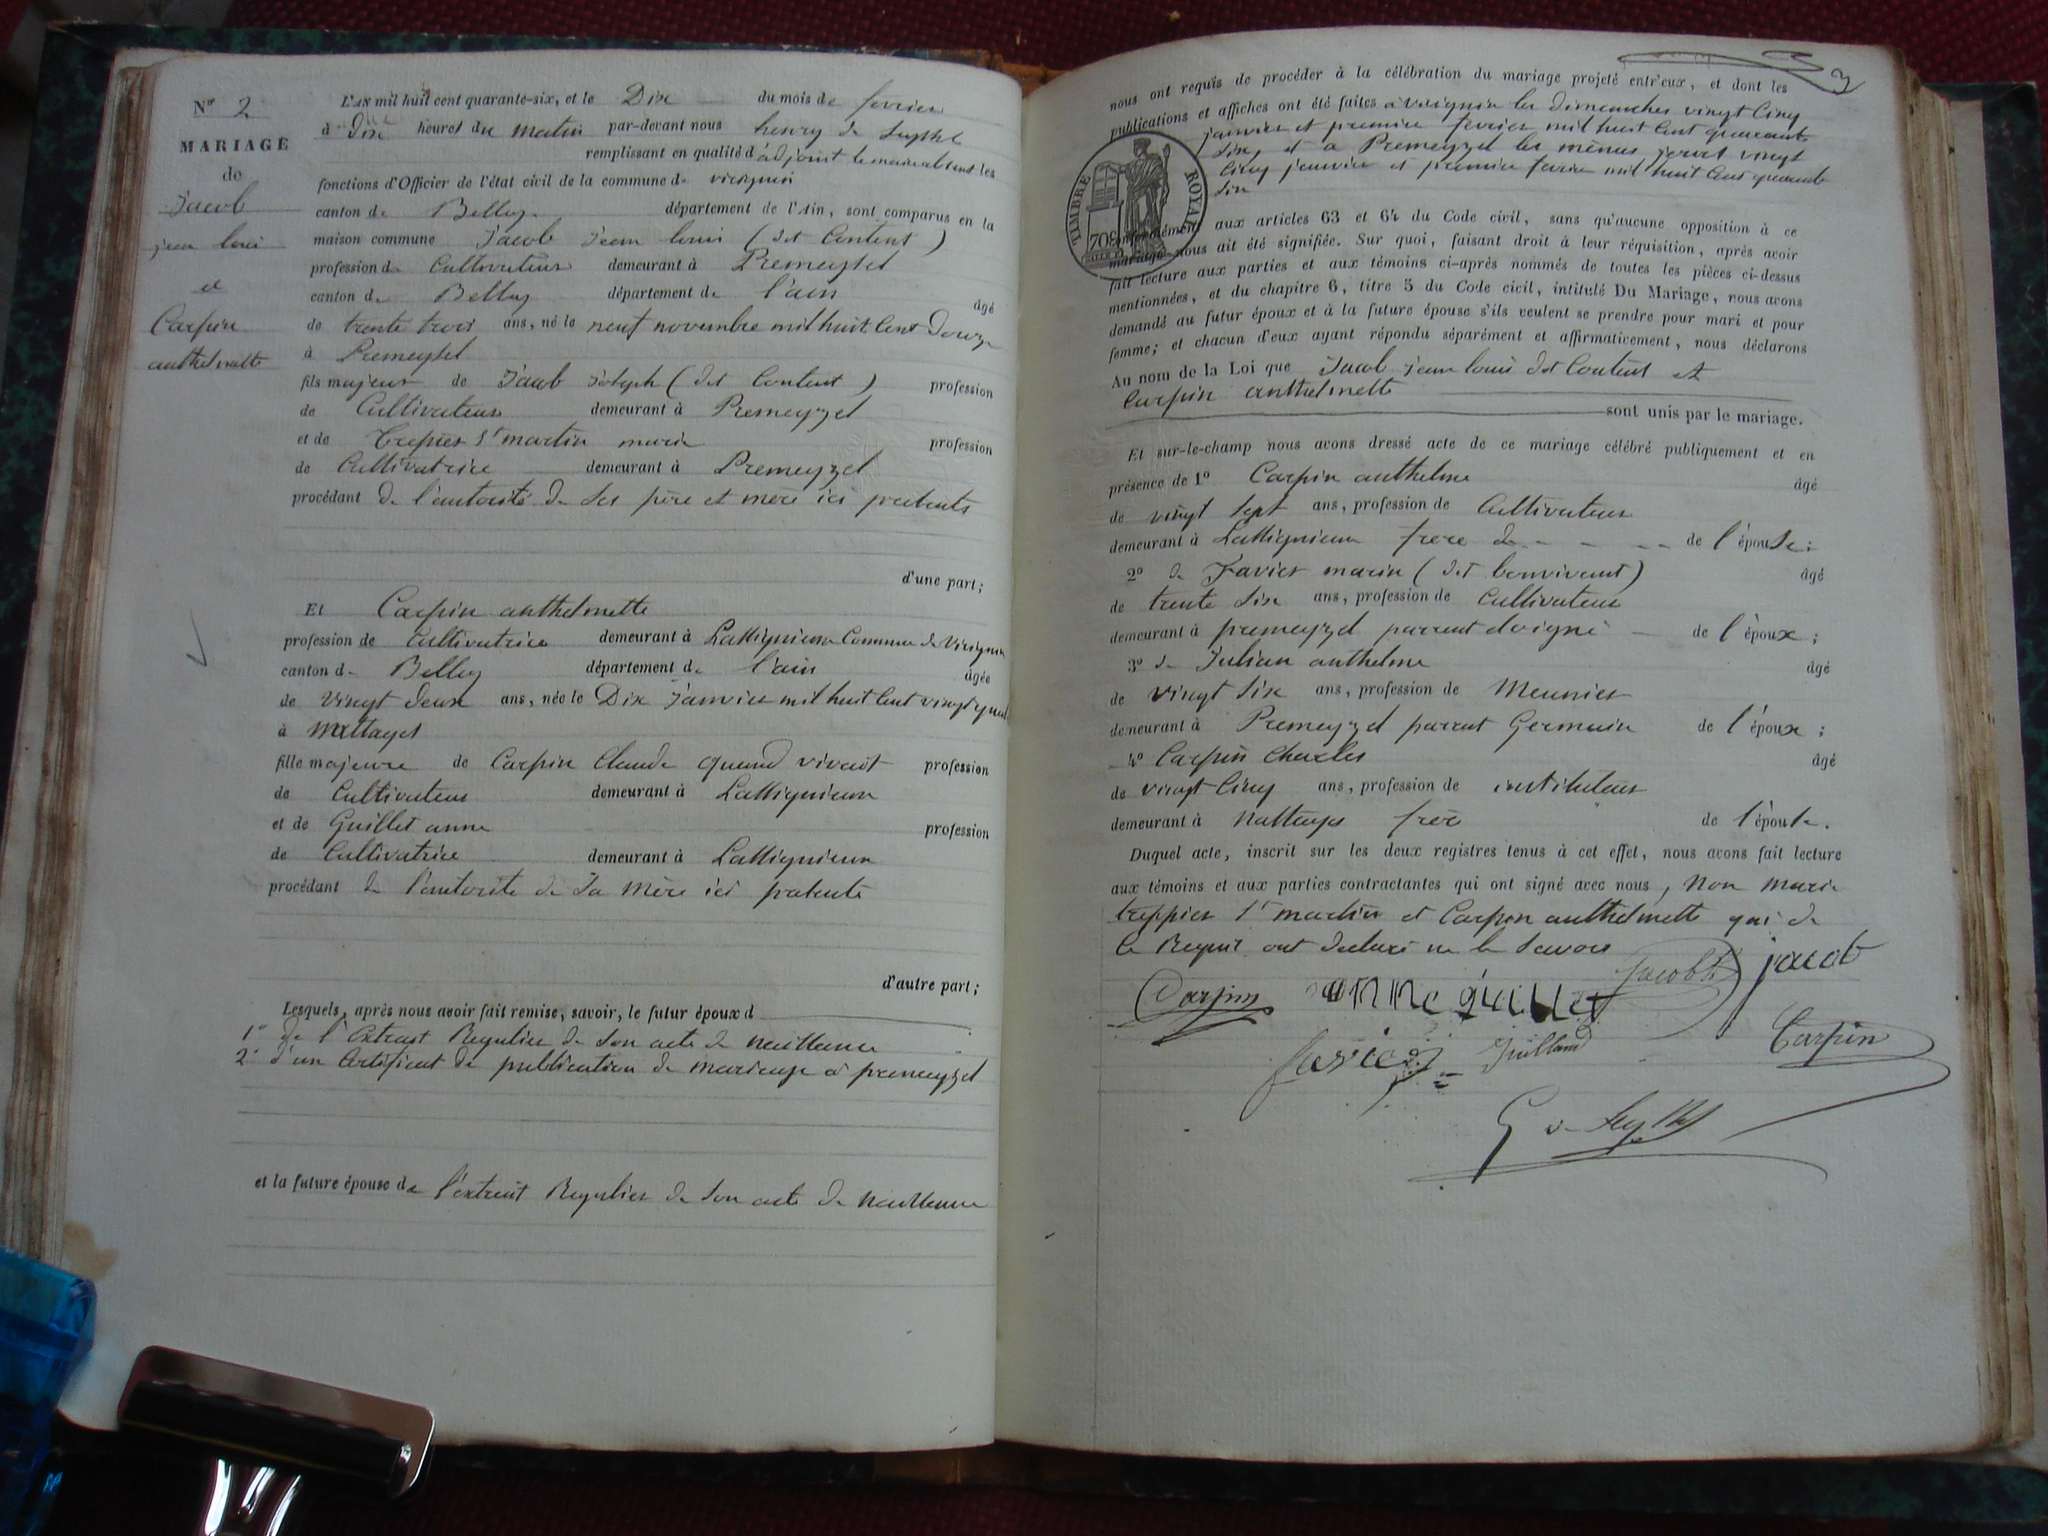 Nro 2
MARIAGE
de
Jacob
jean loui
et
Carpin
anthelmette
L'AN mil huit cent quarante-six, et le Dix du mois de fevrier
à Dix heures du matin par-devant nous henry de Seyssel
remplissant en qualité d'adjoint le maire absent les
fonctions d'Officier de l'état civil de la commune de virignin
canton de Belley département de l'Ain, sont comparus en la
maison commune Jacob Jean louis (dit Content)
profession de Cultivateur demeurant à Premeyzel
canton de Belley département de l'ain âgé
de trente trois ans, né le neuf novembre mil huit Cent Douze
à Premeyzel
fils majeur de Jacob Joseph (dit Content) profession
de Cultivateur demeurant à Premeyzel
et de Trepier St martin marie profession
de Cultivatrice demeurant à Premeyzel
procédant de l'autorité de Ses père et mère ici presents
d'une part;
Et Carpin anthelmette
profession de Cultivatrice demeurant à Lassignieu Commune de Virignin
canton de Belley département de l'ain âgée
de vingt deux ans, née le Dix Janvier mil huit Cent vingt quatre
à Nattages
fille majeure de Carpin Claude quand vivait profession
de Cultivateur demeurant à Lassignieu
et de Guillet anne profession
de Cultivatrice demeurant à Lassignieu
procédant de l'autorité de Sa Mère ici presente
d'autre part;
Lesquels, après nous avoir fait remise, savoir, le futur époux d
1° de l'Extrait Regulier de Son acte de naissance
2° d'un Certificat de publication de mariage à premeyzel
et la future épouse de l'extrait Regulier de Son acte de Naissance
3
nous ont requis de procéder à la célébration du mariage projeté entr'eux, et dont les
publications et affiches ont été faites à virignin les dimanches vingt Cinq
janvier et premier fevrier mil huit Cent quarante
Six et à Premeyzel les mêmes jours vingt
Cinq janvier et premier fevrier mil huit Cent quarante
Six
TIMBRE ROYAL
70c
conformément aux articles 63 et 64 du Code civil, sans qu'aucune opposition à ce
mariage nous ait été signifiée. Sur quoi, faisant droit à leur réquisition, après avoir
fait lecture aux parties et aux témoins ci-après nommés de toutes les pièces ci-dessus
mentionnées, et du chapitre 6, titre 5 du Code civil, intitulé Du Mariage, nous avons
demandé au futur époux et à la future épouse s'ils veulent se prendre pour mari et pour
femme; et chacun d'eux ayant répondu séparément et affirmativement, nous déclarons
Au nom de la Loi que Jacob Jean louis dit Content et
Carpin anthelmette
sont unis par le mariage.
Et sur-le-champ nous avons dressé acte de ce mariage célébré publiquement et en
présence de 1° Carpin anthelme âgé
de vingt Sept ans, profession de Cultivateur
demeurant à Lassignieu frere de de l'épouse;
2° de Favier marin (dit bonvivant) âgé
de trente Six ans, profession de Cultivateur
demeurant à premeyzel parrent eloigné de l'époux;
3° de Julian anthelme âgé
de vingt Six ans, profession de Meunier
demeurant à Premeyzel parrent Germain de l'époux;
4° Carpin Charles âgé
de vingt Cinq ans, profession de instituteur
demeurant à Nattages frere de l'épouse.
Duquel acte, inscrit sur les deux registres tenus à cet effet, nous avons fait lecture
aux témoins et aux parties contractantes qui ont signé avec nous, Non Marie
treppier St martin et Carpin anthelmette qui de
Ce Requis ont declaré ne le Savoir
Carpin anne guillet Jacob jacob
favier Juilland Carpin
de Seyssel